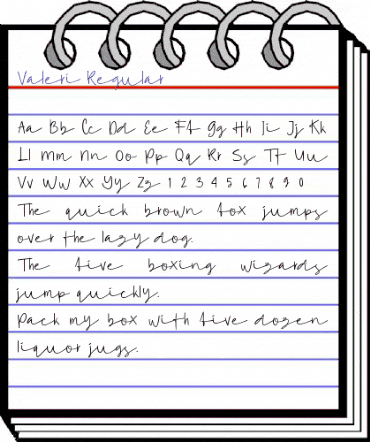 Valeri Regular
Aa Bb Cc Dd Ee Ff Gg Hh Ii Jj Kk
Ll Mm Nn Oo Pp Qq Rr Ss Tt Uu
Vv Ww Xx Yy Zz 1 2 3 4 5 6 7 8 9 0
The quick brown fox jumps
over the lazy dog.
The five boxing wizards
jump quickly.
Pack my box with five dozen
liquor jugs.